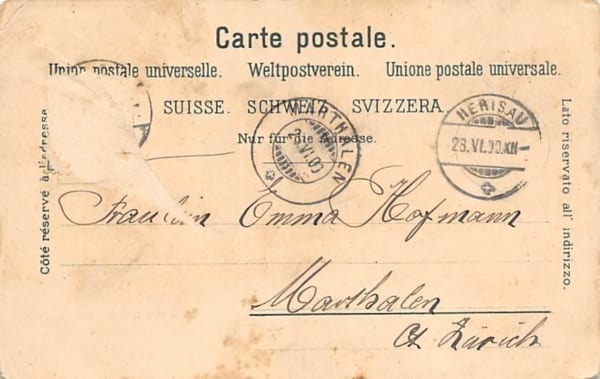 Carte postale.
Union postale universelle. Weltpostverein. Unione postale universale.
SUISSE. SCHWEIZ. SVIZZERA.
Nur für die Adresse.
Côté réservé à l'adresse
Lato riservato all' indirizzo.
MARTHALEN
VI.00
HERISAU
23.VI.00.XII-
Fraulein Emma Hofmann
Marthalen
Ct. Zürich